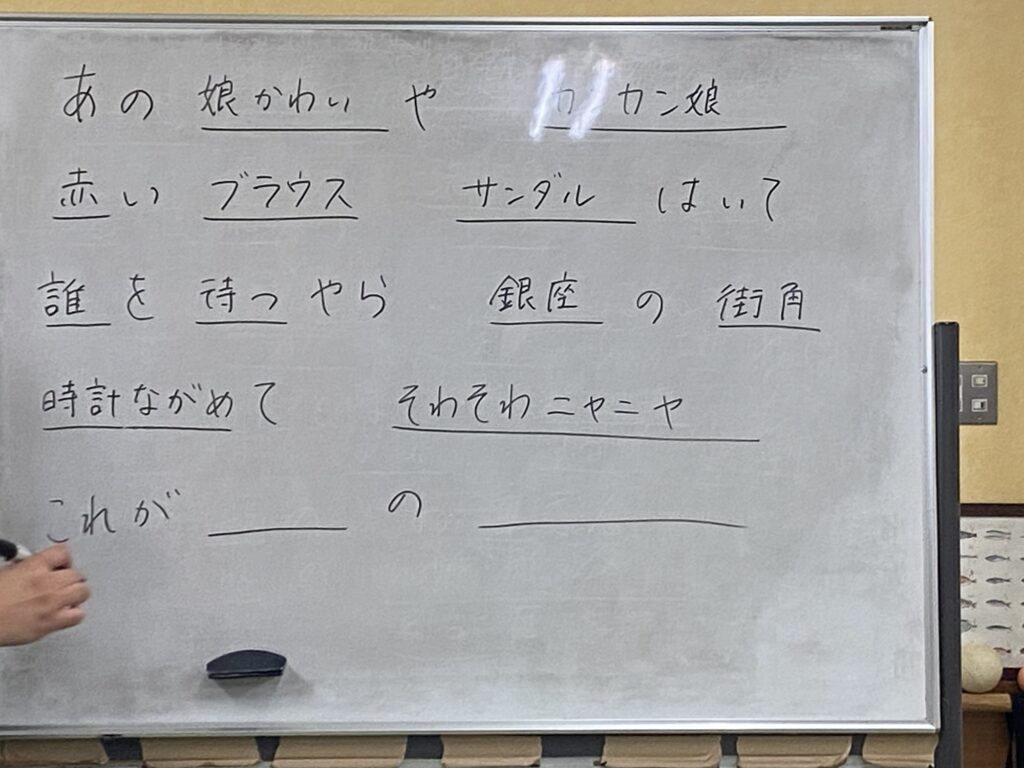 あの 娘かわい や カンカン娘
赤い ブラウス サンダル はいて
誰を 待つやら 銀座 の 街角
時計ながめて そわそわニヤニヤ
これが の